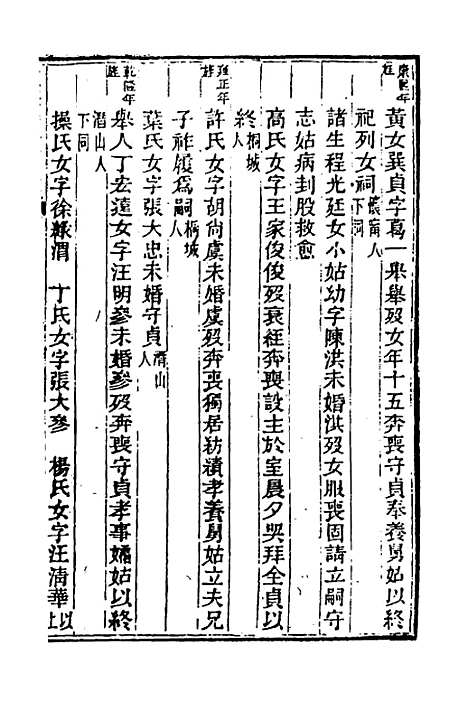 康熙年旌
黃女巽貞字葛一舉舉歿女年十五奔喪守貞奉養舅姑以終
祀列女祠懷甯人下同
諸生程光廷女小姑幼字陳洪未婚淇歿女服喪固請立嗣守
志姑病刲股救愈
高氏女字王家俊俊歿衰絰奔喪設主於室晨夕哭拜全貞以
終桐城人
雍正年旌
許氏女字胡尚虞未婚虞歿奔喪獨居紡績孝養舅姑立夫兄
子祚鍰爲嗣桐城人
葉氏女字張大忠未婚守貞潛山人
乾隆年旌
舉人丁宏遠女字汪明參未婚參歿奔喪守貞孝事孀姑以終
潛山人下同
操氏女字徐渭 丁氏女字張大參 楊氏女字汪清華以上